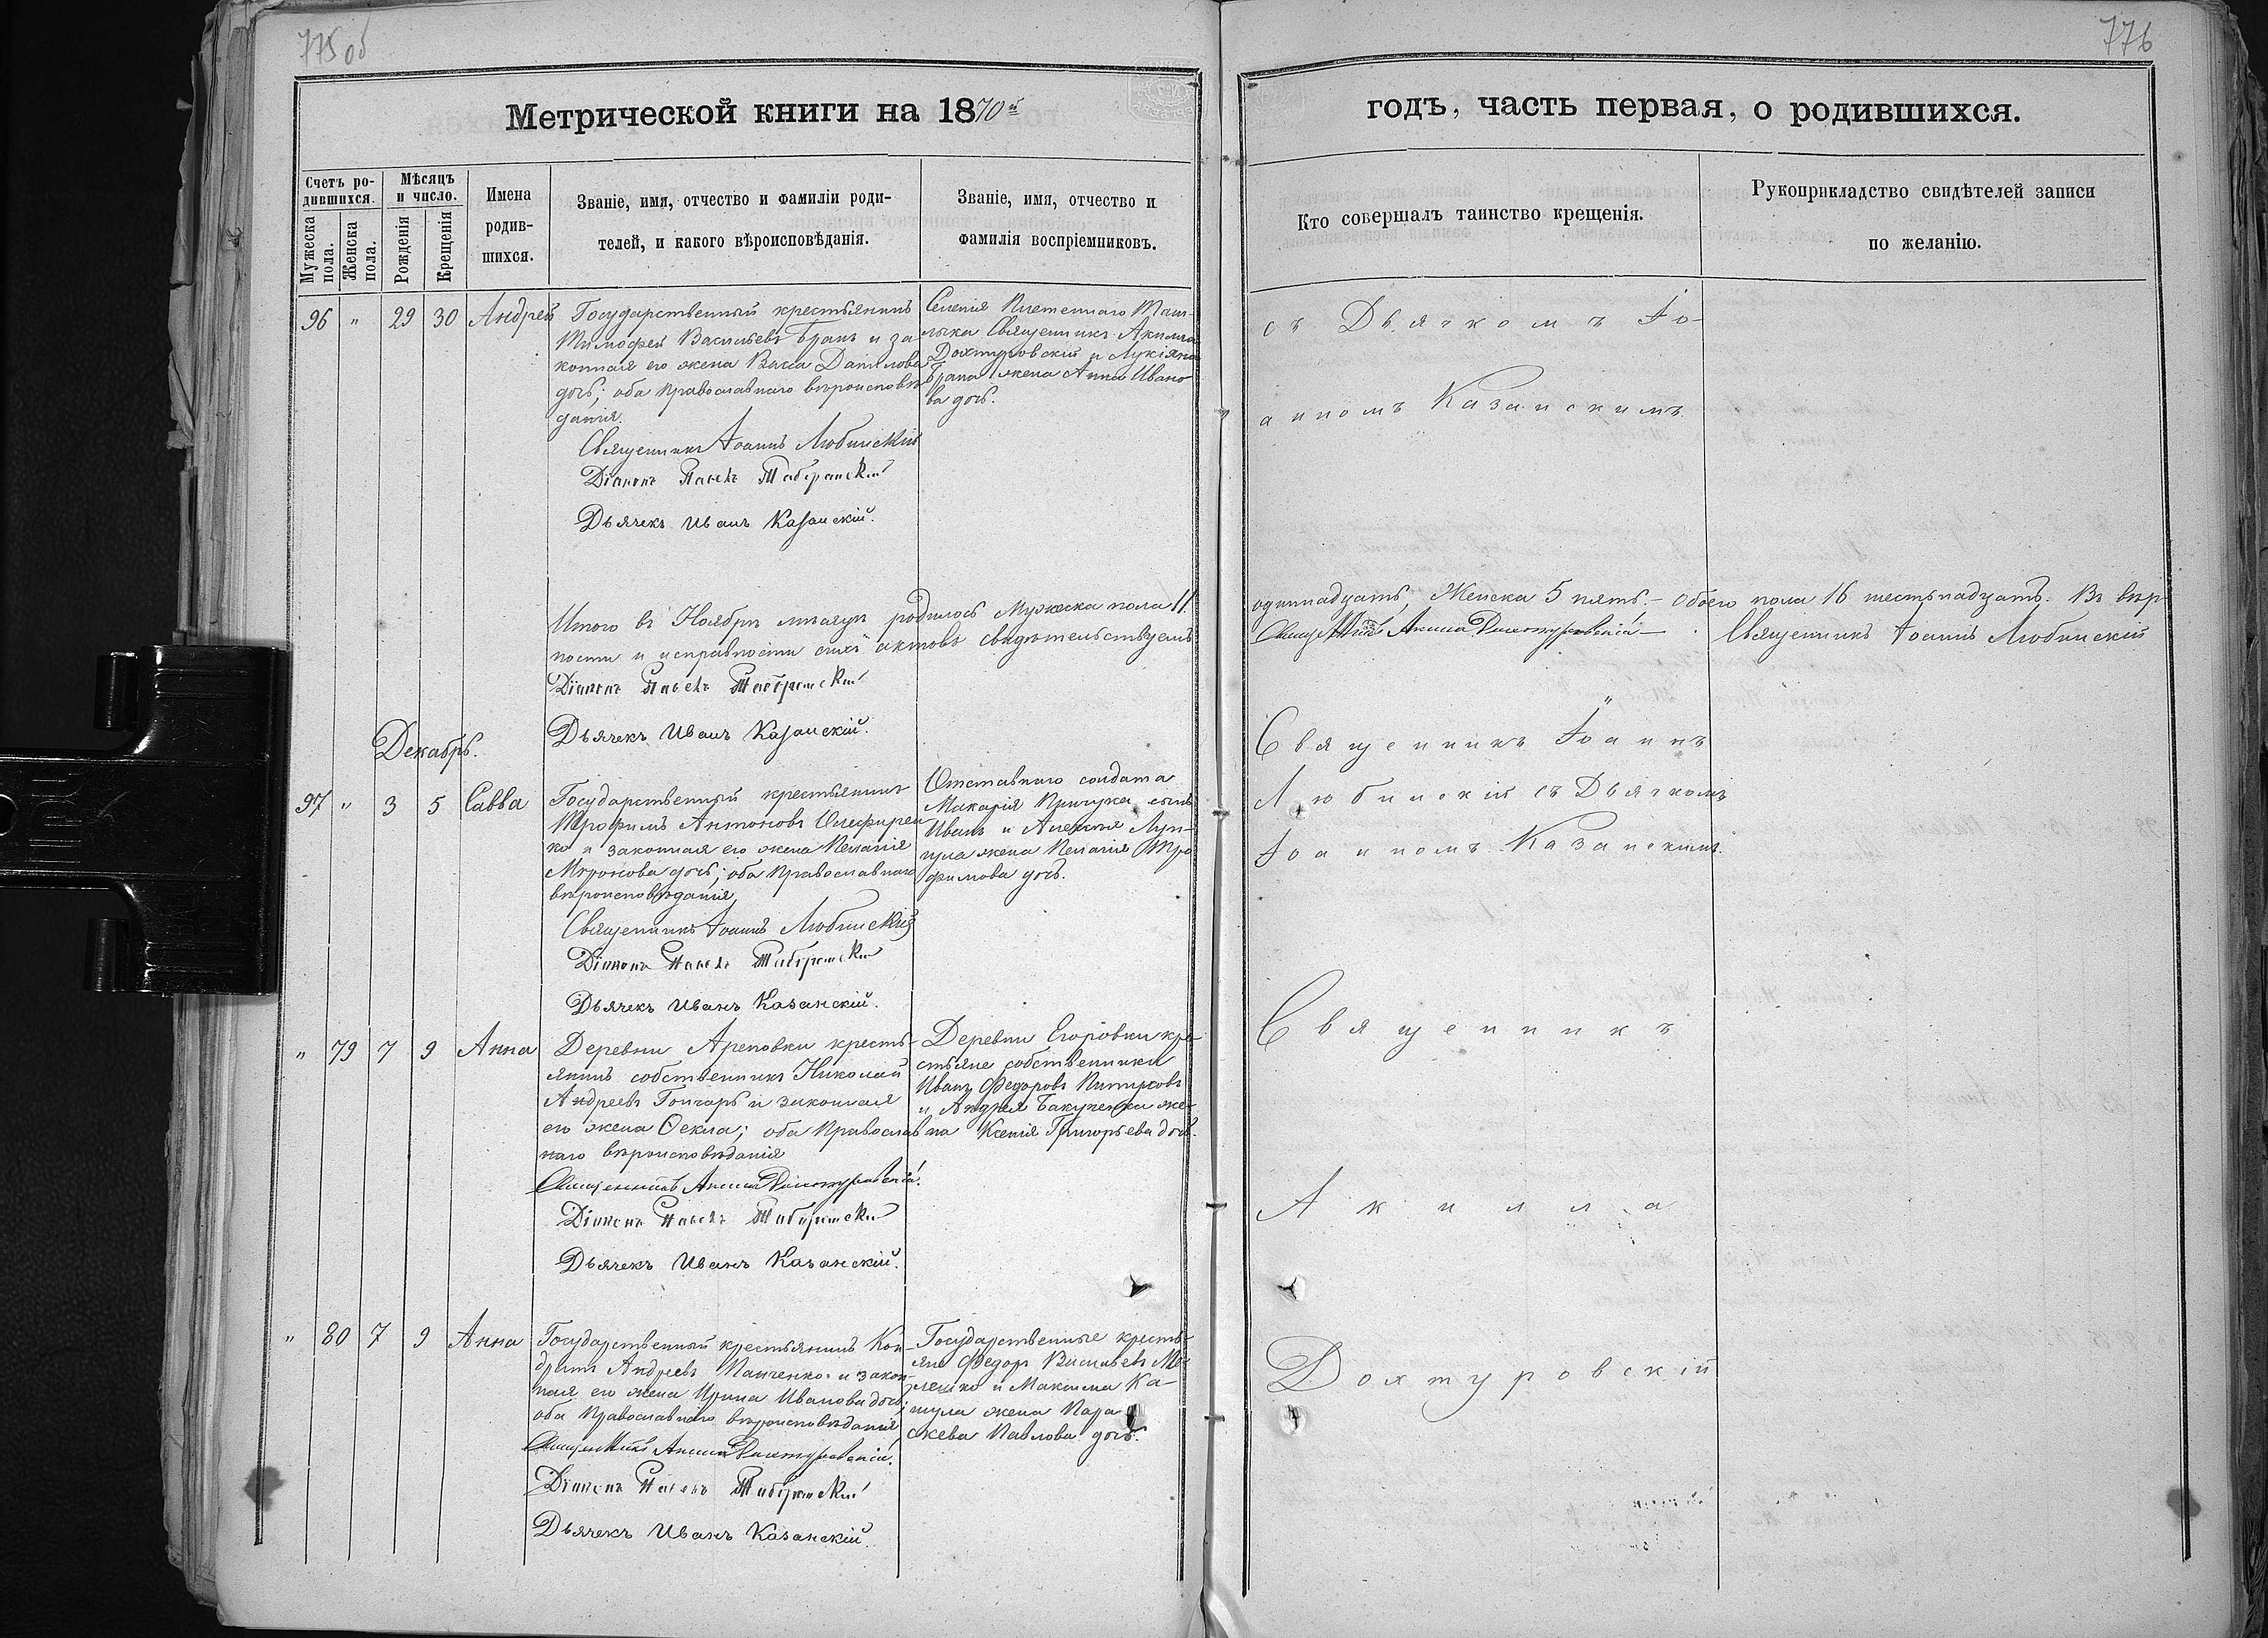 775об
776
Метрической книги на 1870й
годъ, часть первая, о родившихся.
Счетъ ро-
дившихся.
Мужеска
пола.
Женска
пола.
Мѣсяцъ
и число.
Рожденія
Крещенія
Имена
родив-
шихся.
Званіе, имя, отчество и фамиліи роди-
телей, и какого вѣроисповѣданія.
Званіе, имя, отчество и
фамилія воспріемниковъ.
Кто совершалъ таинство крещенія.
Рукоприкладство свидѣтелей записи
по желанію.
96 " 29 30 Андрей
Государственный крестьянинъ
Тимофей Васильевъ Бранъ и за
конная его жена Васса Данилова
дочь; оба Православнаго вѣроисповѣ
данія.
Священникъ Іоаннъ Любинскій
Діаконъ Павелъ
Дьячекъ Иванъ Казанскій.
Селенія Плетенаго Таш-
лыка Священникъ Акилла
Дохтуровскій и Лукіяна
Брана жена Анна Ивано
ва дочь.
съ Дьячкомъ Іо-
анномъ Казанскимъ.
Итого въ Ноябрѣ мѣсяцѣ родилось Мужеска пола 11.
одиннадцать, Женска 5 пять. – Обоего пола 16 шестьнадцать. Въ вѣр
ности и исправности сихъ актовъ свидѣтельствуемъ
Священникъ Акилла Дохтуровскій – Священникъ Іоаннъ Любинскій
Діаконъ Павелъ
Дьячекъ Иванъ Казанскій.
Декабрь.
97 " 3 5 Савва
Государственный крестьянинъ
Трофимъ Антоновъ Олефирен
ко и законная его жена Пелагія
Миронова дочь; оба Православнаго
вѣроисповѣданія
Священникъ Іоаннъ Любинскій
Діаконъ Павелъ
Дьячекъ Иванъ Казанскій.
Отставнаго солдата
Макарія сынъ
Иванъ и Луп-
жена Пелагія Тро
фимова дочь.
Священникъ Іоаннъ
Любинскій съ Дьячкомъ
Іоанномъ Казанскимъ.
" 79 7 9 Анна
Деревни Ареповки кресть-
янинъ собственникъ Николай
Андреевъ Гончаръ и законная
его жена Ѳекла; оба Православ
наго вѣроисповѣданія
Священникъ Акилла Дохтуровскій.
Діаконъ Павелъ
Дьячекъ Иванъ Казанскій.
Деревни Егоровки кре-
стьяне собственники
Иванъ Федоровъ
и Андрея же-
на Ксенія Григорьева дочь.
Священникъ
Акилла
Дохтуровскій
" 80 7 9 Анна
Государственный крестьянинъ Кон-
дратъ Андреевъ Панченко и закон-
ная его жена Ирина Иванова дочь;
оба Православнаго вѣроисповѣданія
Священникъ Акилла Дохтуровскій.
Діаконъ Павелъ
Дьячекъ Иванъ Казанскій.
Государственные кресть-
яне Федоръ Васильевъ Ме
лешко и Максима Ка-
жена Пара
скева Павлова дочь.